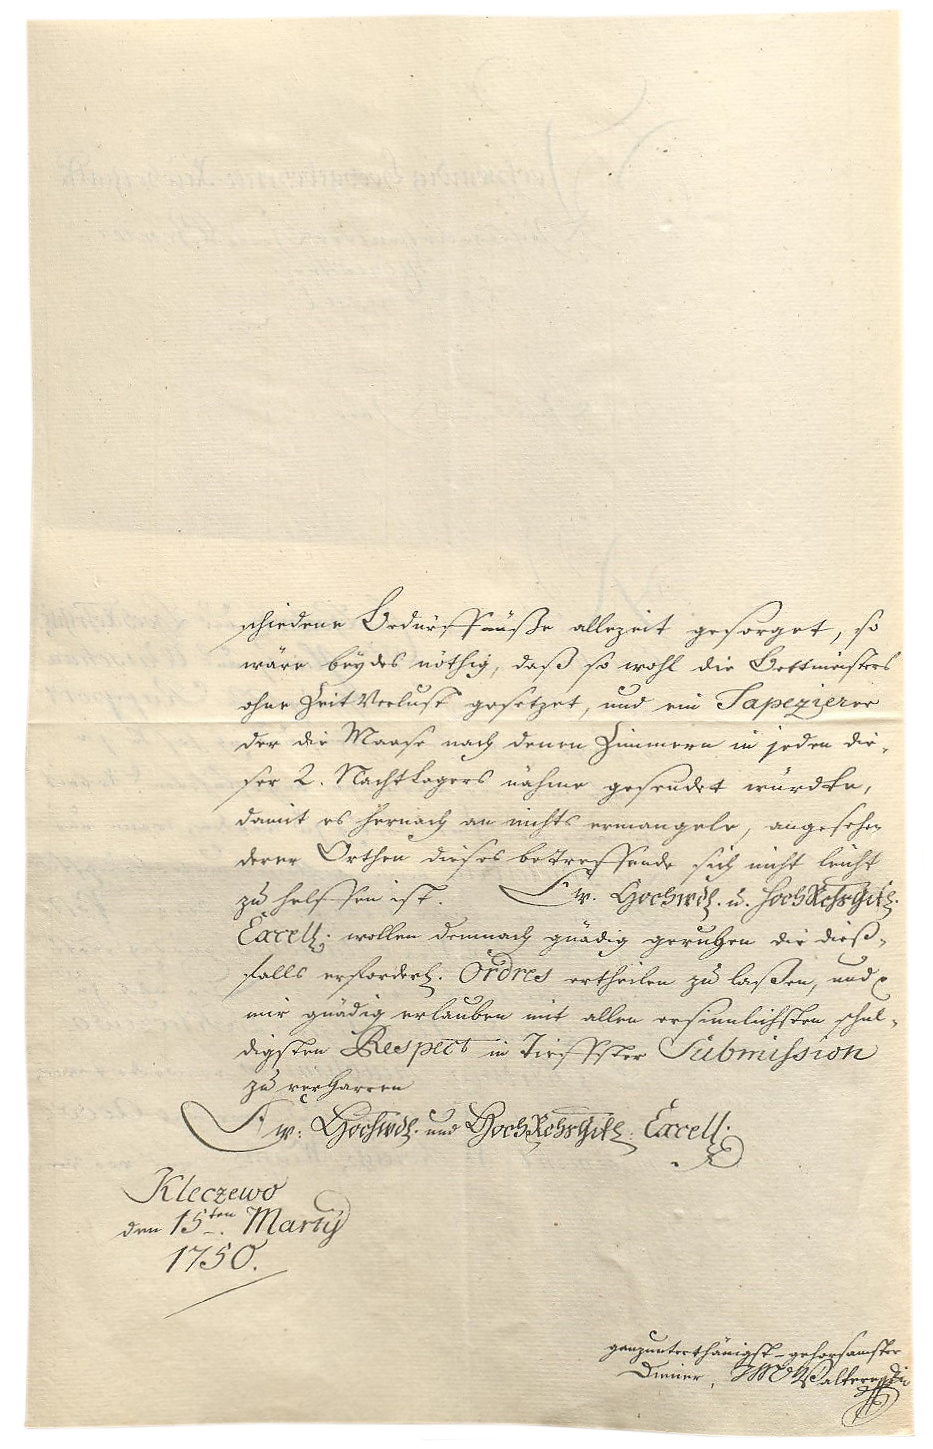 schiedene Bedürffnüße allezeit gesorget, so
wäre beydes nöthig, daß so wohl die Bettmeisters
ohne Zeit Verlust gesetzet, und ein Tapezierer
der die Maase nach denen Zimmern in jeden die-
ser 2. Nachtlagers nähme gesendet würdte,
damit es hernach an nichts ermangele, angesehen
derer Orthen dieses betreffende sich nicht leicht
zu helffen ist. Ew. Hochwdl. u. Hoch
Excell: wollen demnach gnädig geruhen die dieß-
falls erforderl. Ordres ertheilen zu laßen, und
mir gnädig erlauben mit allen ersinnlichsten schul-
digsten Respect in Tieffster Submission
zu verharren
Ew: Hochwdl. und Hoch Excell:
Kleczewo
den 15ten Martij
1750.
ganzunterthänigst-gehorsamster
Diener,